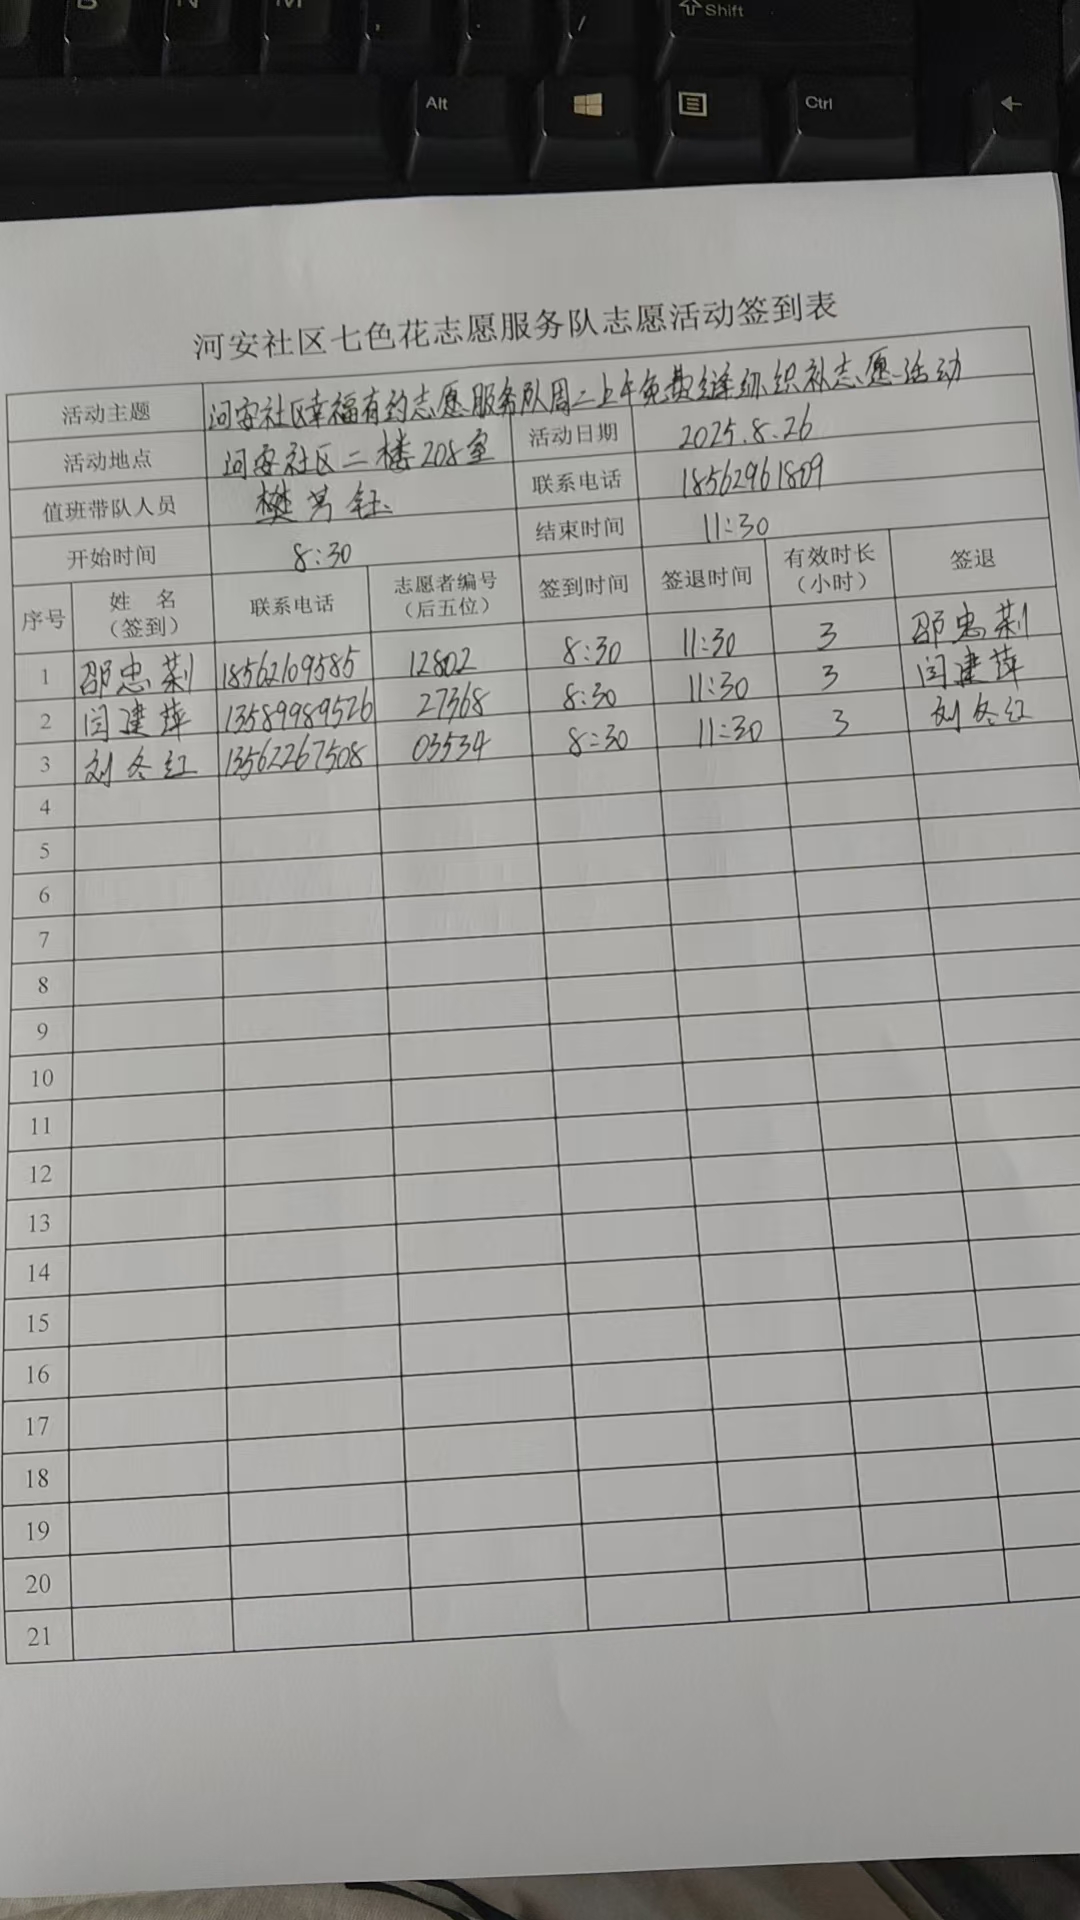 B N M , . / ⇧Shift
Alt Ctrl ←
河安社区七色花志愿服务队志愿活动签到表
活动主题 河安社区幸福有约志愿服务队周二上午免费缝纫织补志愿活动
活动地点 河安社区二楼208室 活动日期 2025.8.26
值班带队人员 樊芳钰 联系电话 18562961809
开始时间 8:30 结束时间 11:30
序号 姓 名（签到） 联系电话 志愿者编号（后五位） 签到时间 签退时间 有效时长（小时） 签退
1 邵忠荆 18562109585 12802 8:30 11:30 3 邵忠荆
2 闫建萍 13589989526 27368 8:30 11:30 3 闫建萍
3 刘冬红 13562267508 03534 8:30 11:30 3 刘冬红
4
5
6
7
8
9
10
11
12
13
14
15
16
17
18
19
20
21